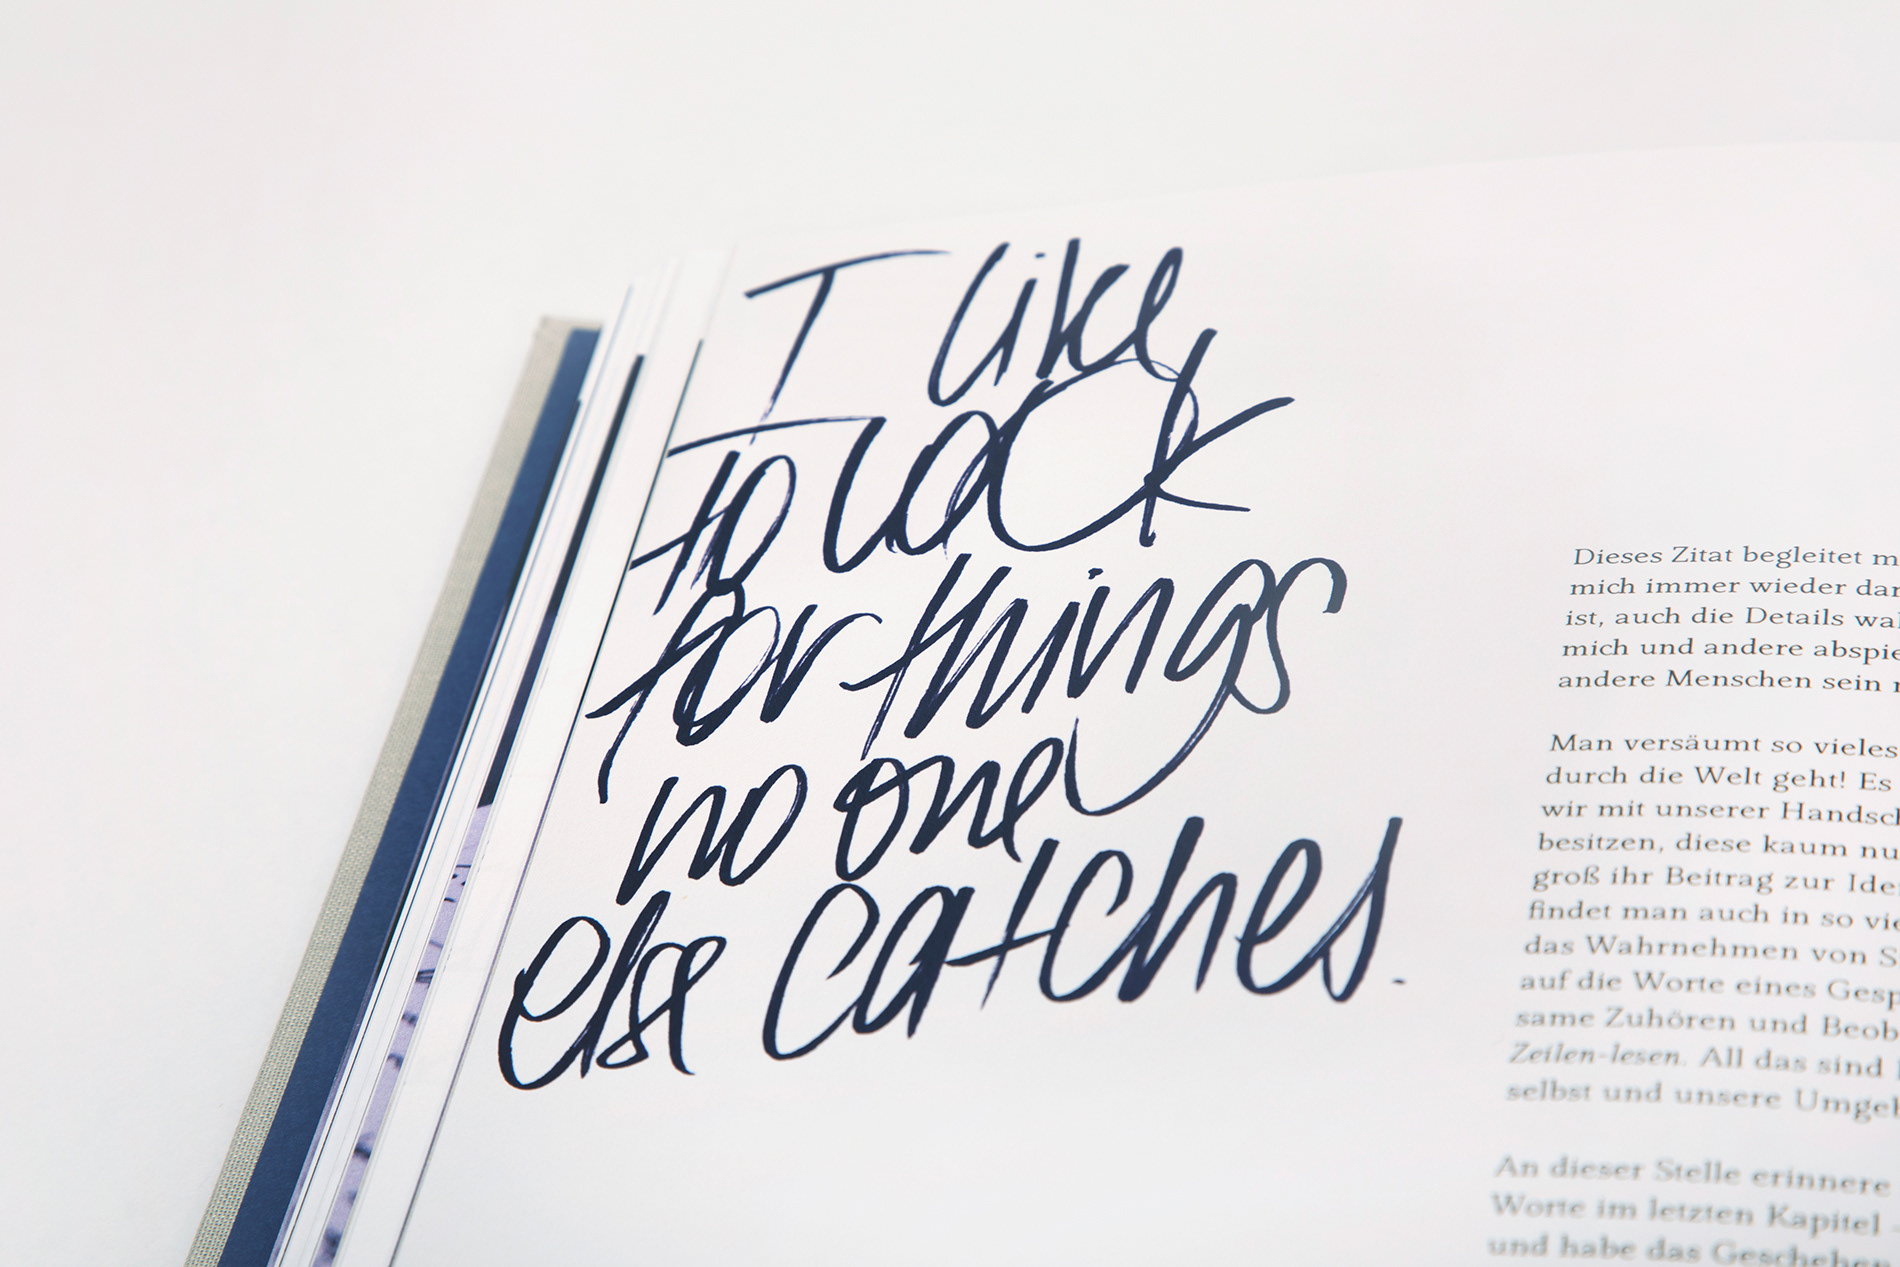 I like
to look
for things
no one
else catches.
Dieses Zitat begleitet
mich immer wieder
ist, auch die Details
mich und andere
andere Menschen sein
Man versäumt so vieles
durch die Welt geht! Es
wir mit unserer
besitzen, diese kaum
groß ihr Beitrag zur
findet man auch in so
das Wahrnehmen von
auf die Worte eines
same Zuhören und
Zeilen-lesen. All das sind
selbst und unsere
An dieser Stelle erinnere
Worte im letzten Kapitel
und habe das Geschehen